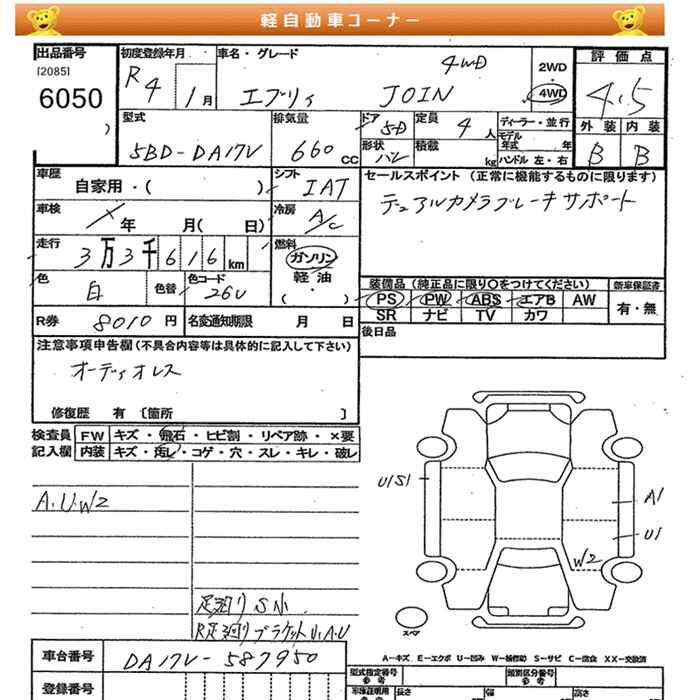 軽自動車コーナー
出品番号 初度登録年月 車名・グレード 評価点
[2085] R4 1月 エブリィ JOIN 4WD 2WD・4WD 4.5
6050
型式 排気量 ドア 定員 ディーラー・並行 外装 内装
5BD-DA17V 660cc 5D 4人 モデル年式 年 B B
形状 バン 積載 kg ハンドル 左・右
車歴 自家用・( ) シフト IAT セールスポイント (正常に機能するものに限ります)
車検 年 月( 日) 冷房 A/C デュアルカメラブレーキサポート
走行 3万3千616km 燃料 ガソリン・軽油・( )
色 白 色替 色コード 26U 装備品 (純正品に限り○をつけてください) 新車保証書
PS PW ABS エアB AW 有・無
R券 8010円 名変通知期限 月 日 SR ナビ TV カワ
後日品
注意事項申告欄 (不具合内容等は具体的に記入して下さい)
オーディオレス
修復歴 有 〔箇所 〕
検査員 FW キズ・飛石・ヒビ割・リペア跡・×要
記入欄 内装 キズ・汚レ・コゲ・穴・スレ・キレ・破レ
U1S1
A1
A.U.W2
U1
W2
足廻り S小
R足廻りブラケットU.A.U
スペア
A-キズ E-エクボ U-凹み W-補修跡 S-サビ C-腐食 XX-交換済
車台番号 DA17V-587950 型式指定番号 参考 類別区分番号 参考
登録番号 車検証明用 参考 長さ 幅 高さ